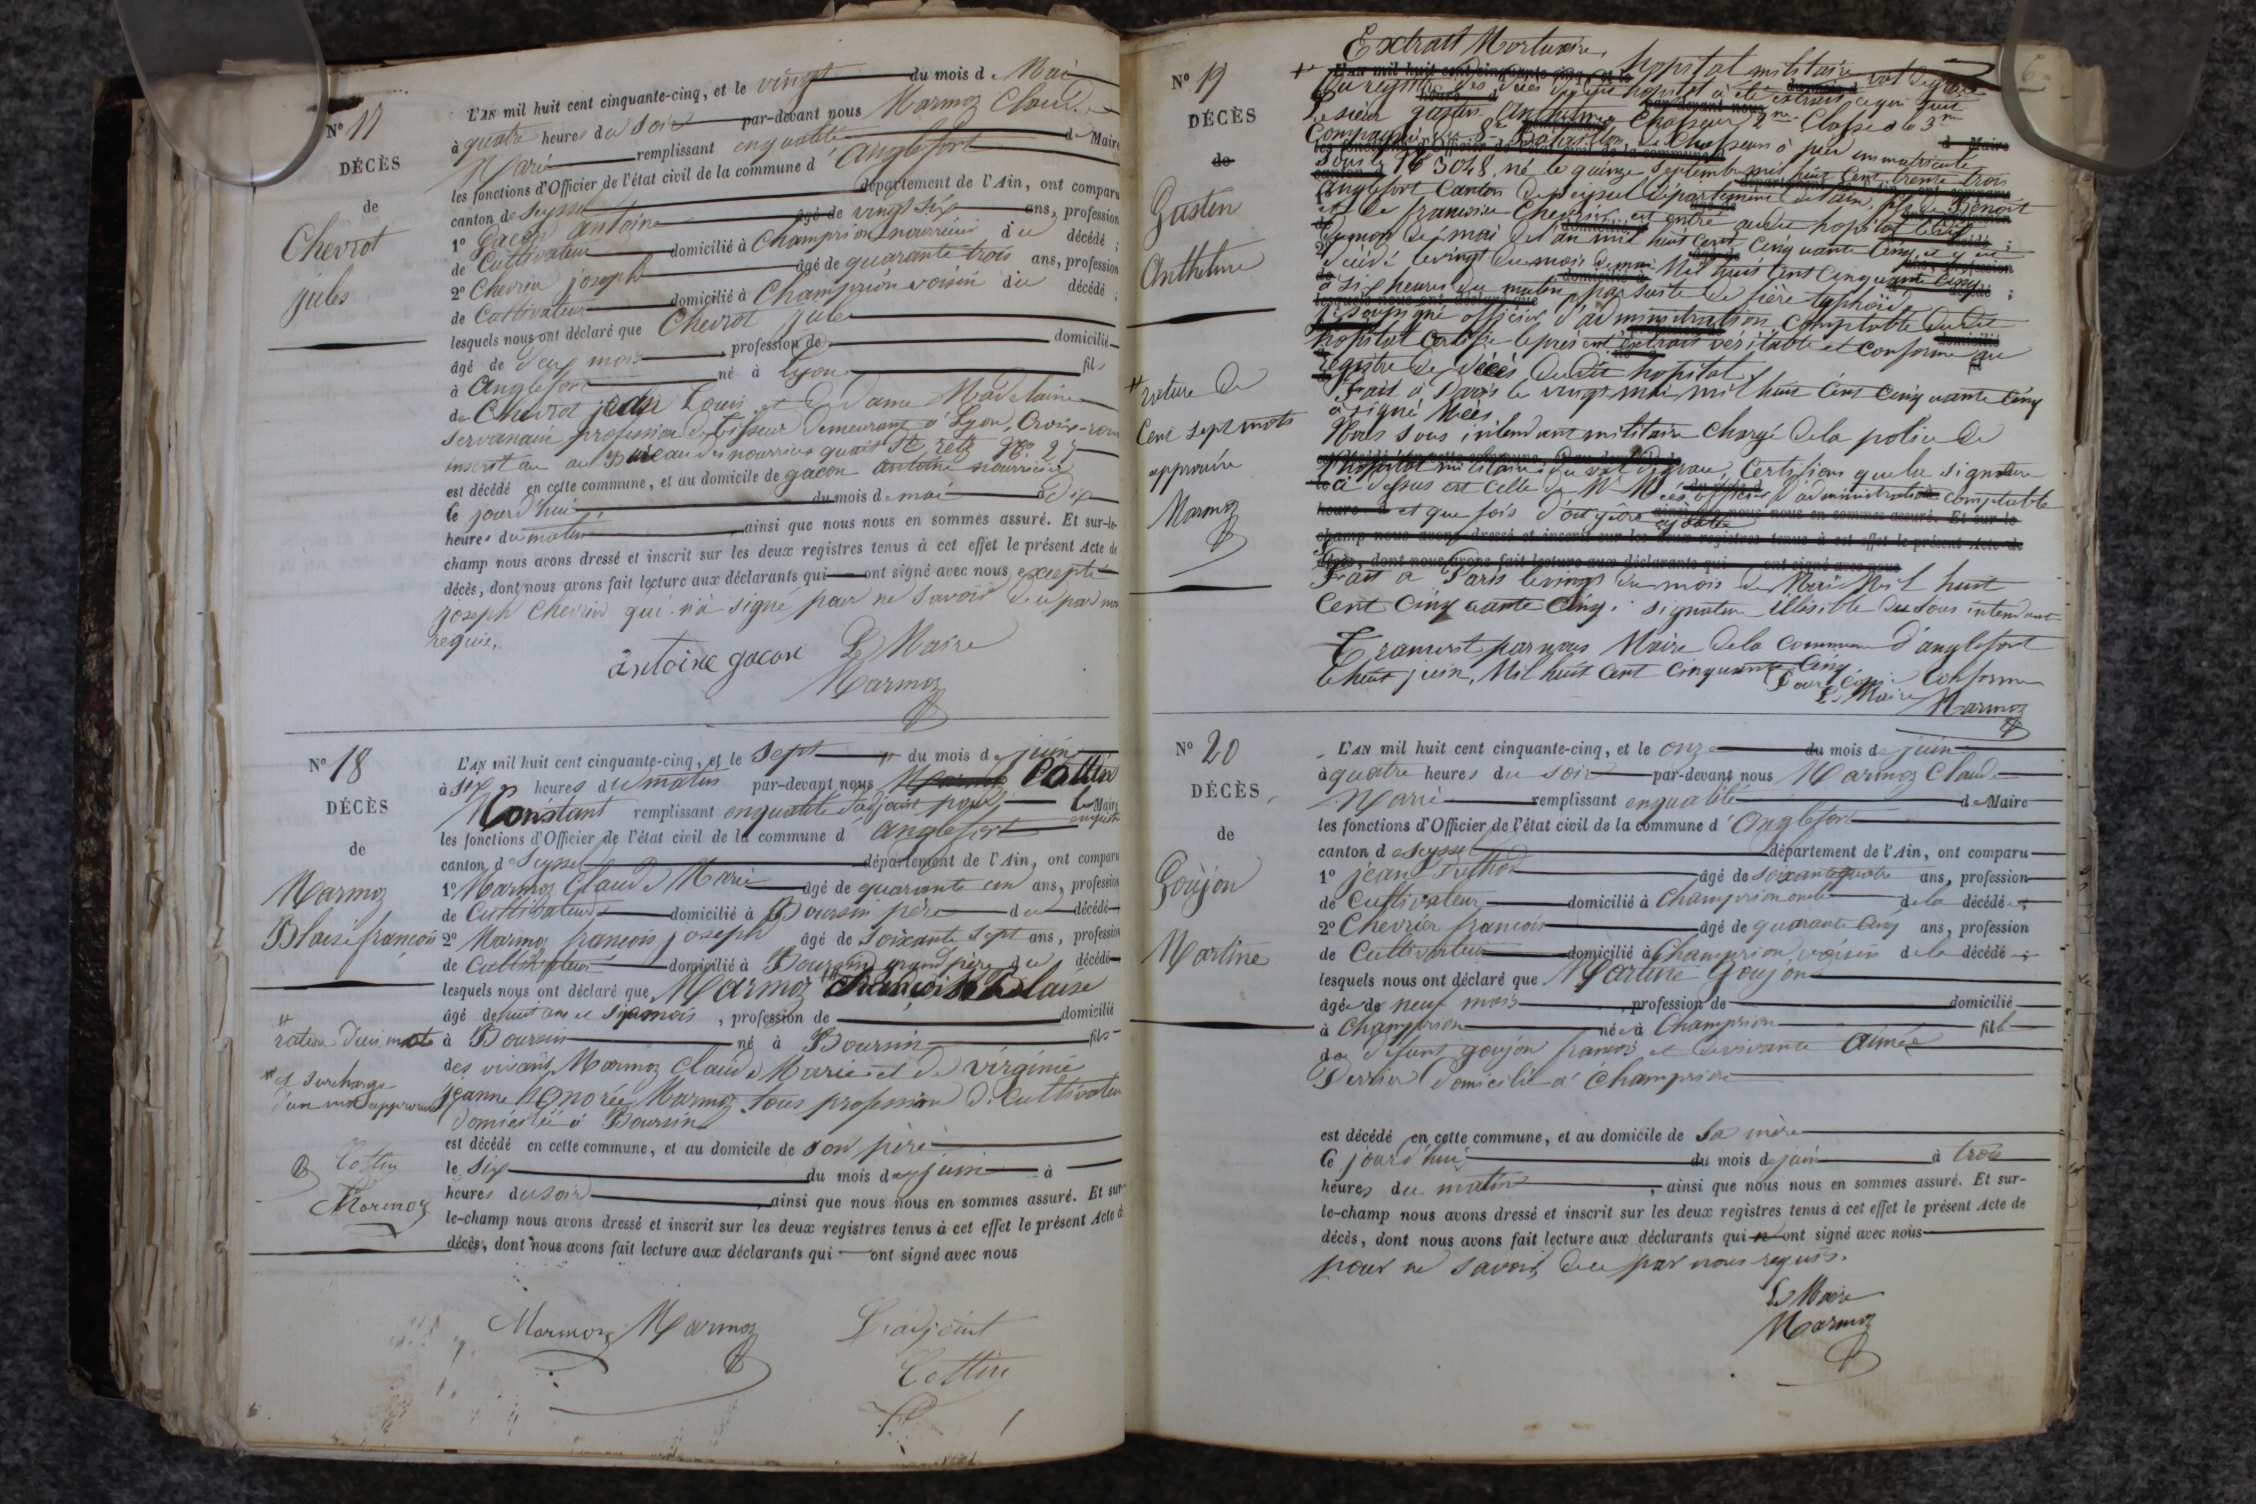 N° 17
DÉCÈS
de
Chevrot
jules
L'AN mil huit cent cinquante-cinq, et le vingt du mois de Mai
à quatre heures du soir par-devant nous Marmoz Claude
Marie remplissant en qualité de Maire
les fonctions d'Officier de l'état civil de la commune d'anglefort
canton de Seyssel département de l'Ain, ont comparu
1° Gacon antoine âgé de vingt six ans, profession
de Cultivateur domicilié à Champrion nourricier du décédé ;
2° Chevrier joseph âgé de quarante trois ans, profession
de Cultivateur domicilié à Champrion voisin du décédé ;
lesquels nous ont déclaré que Chevrot jules
âgé de deux mois, profession de domicilié
à Anglefort né à Lyon fils
de Chevrot jean Louis et de dame Madelaine
profession de Tisseur demeurant à Lyon, Croix-rousse
inscrit au Bureau des nourrices quait
est décédé en cette commune, et au domicile de gacon antoine nourricier
le jourd'hui du mois de mai à dix
heures du matin, ainsi que nous nous en sommes assuré. Et sur-le-
champ nous avons dressé et inscrit sur les deux registres tenus à cet effet le présent Acte de
décès, dont nous avons fait lecture aux déclarants qui ont signé avec nous excepté
joseph Chevrier qui n'a signé pour ne savoir de ce par nous
requis.
antoine gacon Le Maire
Marmoz
N° 18
DÉCÈS
de
Marmoz
Blaise françois
rature d'un mot
et surcharge
d'un mot approuvé
Cottin
Marmoz
L'AN mil huit cent cinquante-cinq, et le sept du mois de juin
à six heures du matin par-devant nous Cottin
Constant remplissant en qualité d'adjoint pour le Maire
les fonctions d'Officier de l'état civil de la commune d'anglefort
canton de Seyssel département de l'Ain, ont comparu
1° Marmoz Claude Marie âgé de quarante un ans, profession
de Cultivateur domicilié à Boursin père du décédé
2° Marmoz françois joseph âgé de soixante sept ans, profession
de Cultivateur domicilié à Boursin grand père du décédé
lesquels nous ont déclaré que Marmoz françois Blaise
âgé de huit ans et six mois, profession de domicilié
à Boursin né à Boursin fils
des vivants Marmoz Claude Marie et de virginie
jeanne honorée Marmoz tous profession de Cultivateur
domiciliés à Boursin
est décédé en cette commune, et au domicile de son père
le six du mois de juin à
heures du soir, ainsi que nous nous en sommes assuré. Et sur-
le-champ nous avons dressé et inscrit sur les deux registres tenus à cet effet le présent Acte de
décès, dont nous avons fait lecture aux déclarants qui ont signé avec nous
Marmoz Marmoz L'adjoint
Cottin
N° 19
DÉCÈS
de
Gustin
Anthelme
rature de
Cent sept mots
approuvée
Marmoz
Extrait Mortuaire, hopital militaire val de grace
Du registre des décès du dit hopital à été extrait ce qui suit
Le sieur gustin Anthelme Chasseur 2me Classe à la 3me
Compagnie du 8e Bataillon de Chasseurs à pied immatriculé
sous le N° 3048, né le quinze Septembre mil huit cent trente trois
Anglefort Canton de Seyssel Département de l'ain, fils de Benoit
et de françoise Chevrier est entré au dit hopital le
du mois de mai de l'an mil huit Cent Cinquante Cinq et y est
décédé le vingt du mois de mai Mil huit Cent Cinquante Cinq
à six heures du matin, par suite de fièvre typhoïde
je soussigné officier d'administration Comptable du dit
hopital Certifie le présent extrait véritable et conforme au
registre de décès du dit hopital
Fait à Paris le vingt mai mil huit Cent Cinquante Cinq
a signé Nées
Nous Sous intendant militaire chargé de la police de
l'hopital militaire du val de grace, Certifions que la signature
ci dessus est celle de Mr Nées officier d'administration comptable
et que fois doit y être ajoutée
Fait à Paris le vingt du mois de Mai Mil huit
Cent Cinquante Cinq. signature illisible du Sous intendant
Transcrit par nous Maire de la Commune d'anglefort
le huit juin, Mil huit Cent Cinquante Cinq.
Pour Copie Conforme
Le Maire Marmoz
N° 20
DÉCÈS
de
Goujon
Martine
L'AN mil huit cent cinquante-cinq, et le onze du mois de juin
à quatre heures du soir par-devant nous Marmoz Claude
Marie remplissant en qualité de Maire
les fonctions d'Officier de l'état civil de la commune d'anglefort
canton de Seyssel département de l'Ain, ont comparu
1° jean âgé de soixante quatre ans, profession
de Cultivateur domicilié à Champrion oncle de la décédée ;
2° Chevrier francois âgé de quarante cinq ans, profession
de Cultivateur domicilié à Champrion voisin de la décédé ;
lesquels nous ont déclaré que Martine Goujon
âgée de neuf mois, profession de domicilié
à Champrion née à Champrion fille
de défunt goujon francois et de vivante Aimée
Perrier domicilié à Champrion
est décédé en cette commune, et au domicile de sa mère
le jourd'hui du mois de juin à trois
heures du matin, ainsi que nous nous en sommes assuré. Et sur-
le-champ nous avons dressé et inscrit sur les deux registres tenus à cet effet le présent Acte de
décès, dont nous avons fait lecture aux déclarants qui n'ont signé avec nous
pour ne savoir de ce par nous requis.
Le Maire
Marmoz